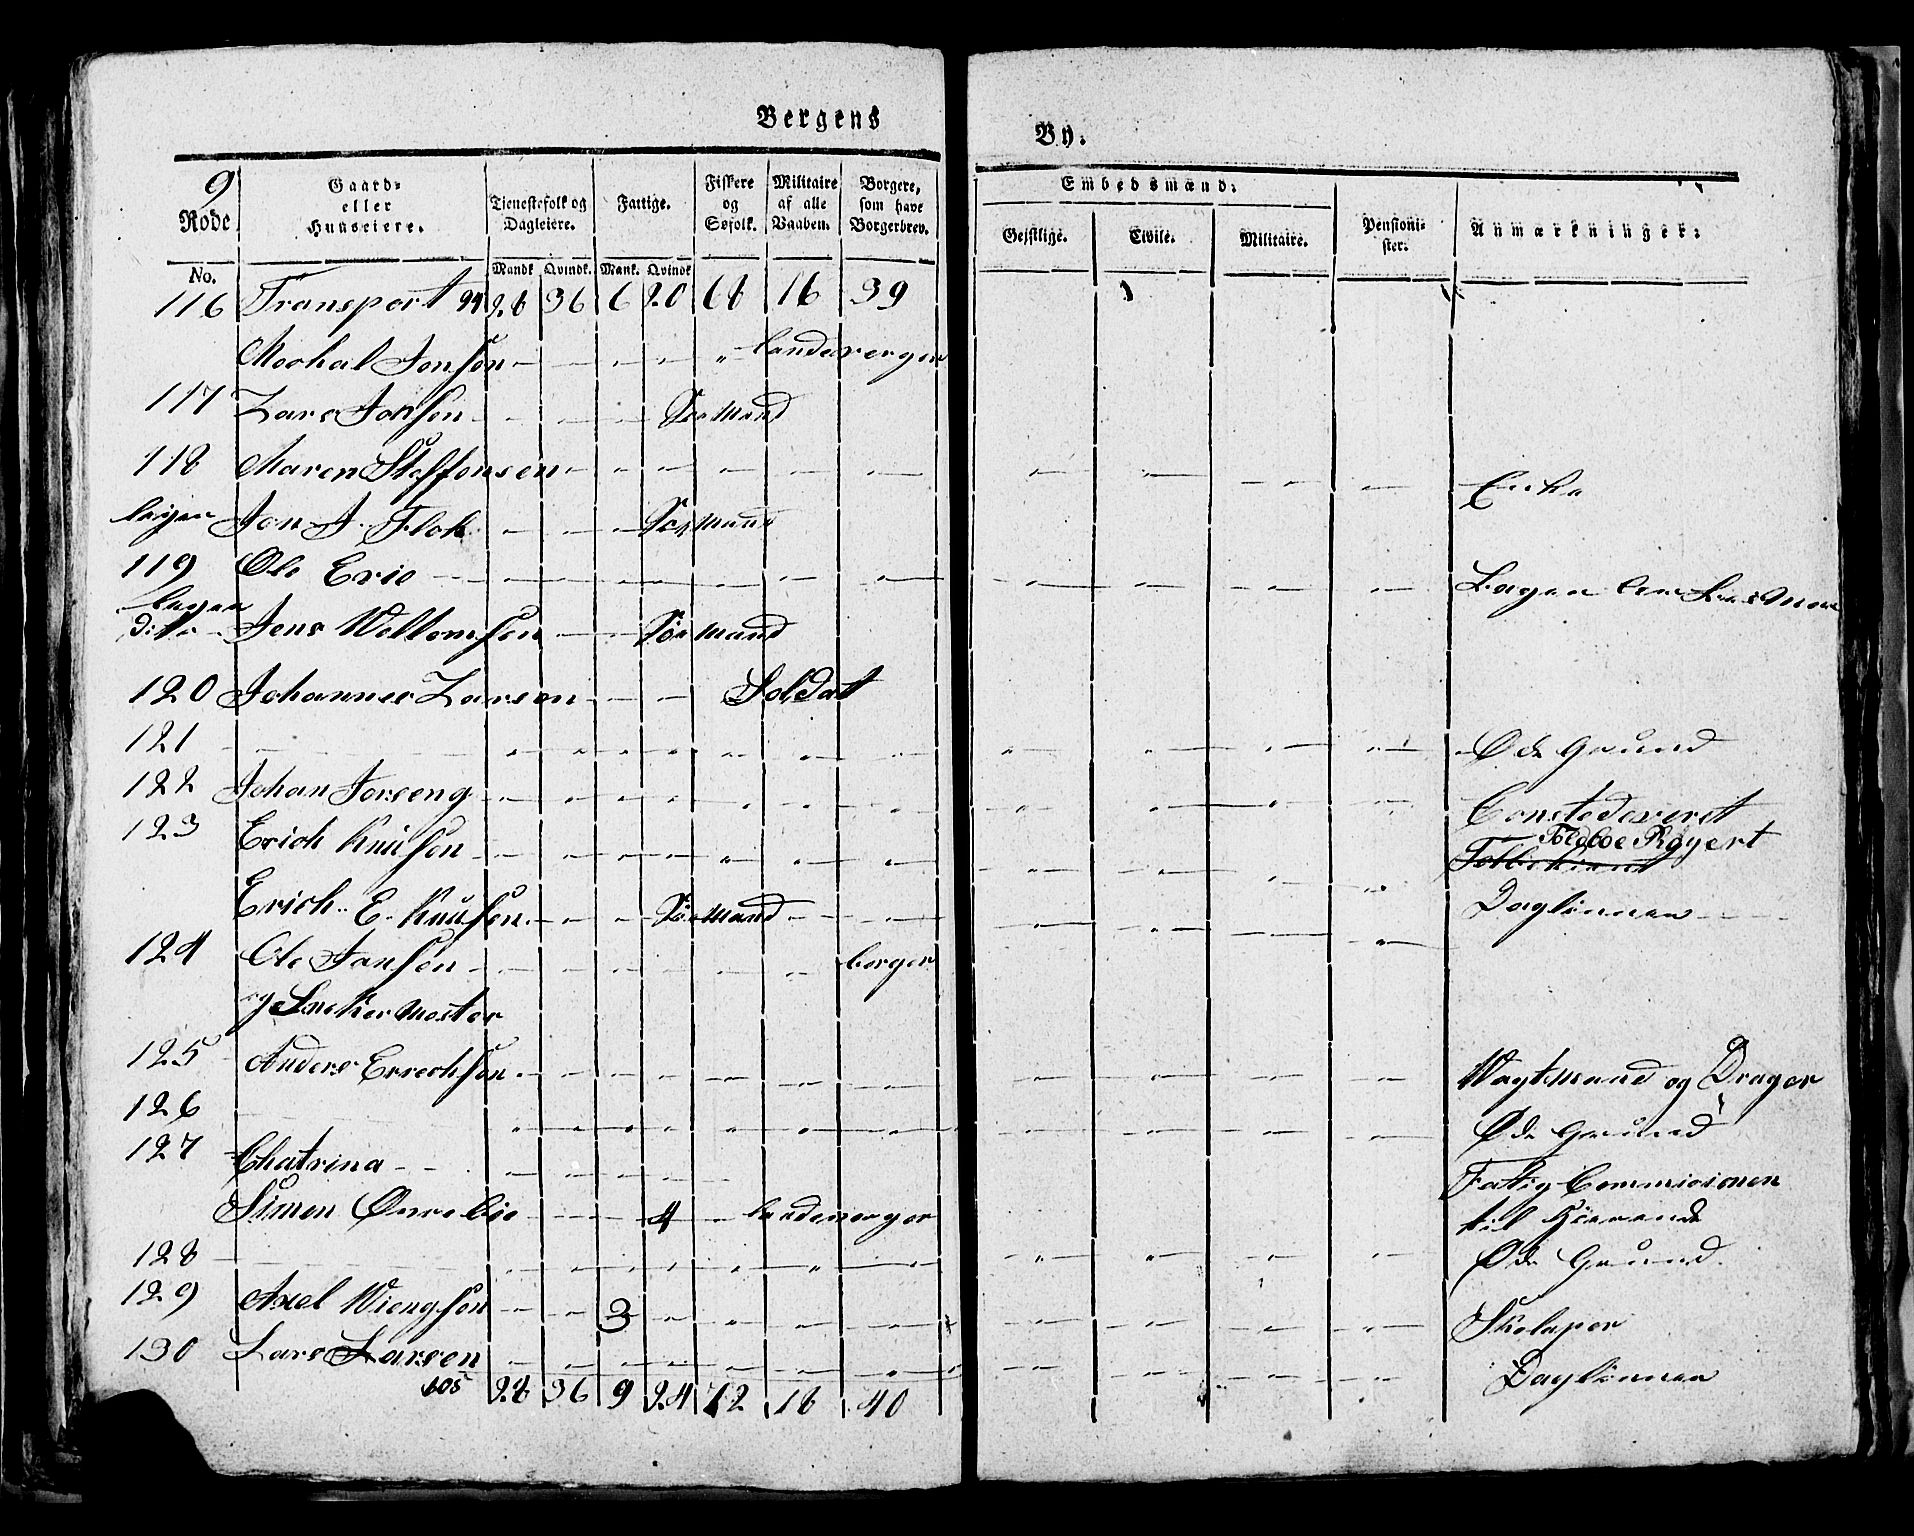 Bergens By.
9 Rode No. Gaard- eller Huuseiere. Tjenestefolk og Dagleiere. Mandk Qvindk. Fattige. Mank. Qvindk Fiskere og Søfolk. Militaire af alle Vaaben. Borgere, som have Borgerbrev. Embedsmænd: Gejstlige. Civile. Militaire. Pensionister. Anmærkninger:
116 Transport 94 28 36 6 20 68 16 39
Mechal Jonsøn landeverger
117 Lars Jonsen Søe Mand
118 Maren Steffensen Enke
Jon J. Flok Søe Mand
119 Ole Eric
dito Jens Wellomsen Søe Mand
120 Johannes Larsen Soldat
121 Øde Grund
122 Johan Jorseng
123 Erich Knusen Toldboe Røyert
Erich E. Knusen Søe Mand Daglønner
124 Ole Jansen borger
og Sneker Mester
125 Anders Errechsøn Vagtmand og Drager
126 Øde Grund
127 Chatrina Fatig Commisionen
Simon 4 landeverger til
128 Øde Grund
129 Axel Wiengsøn 3
130 Lars Larsen Daglønner
105 28 36 9 24 72 18 40